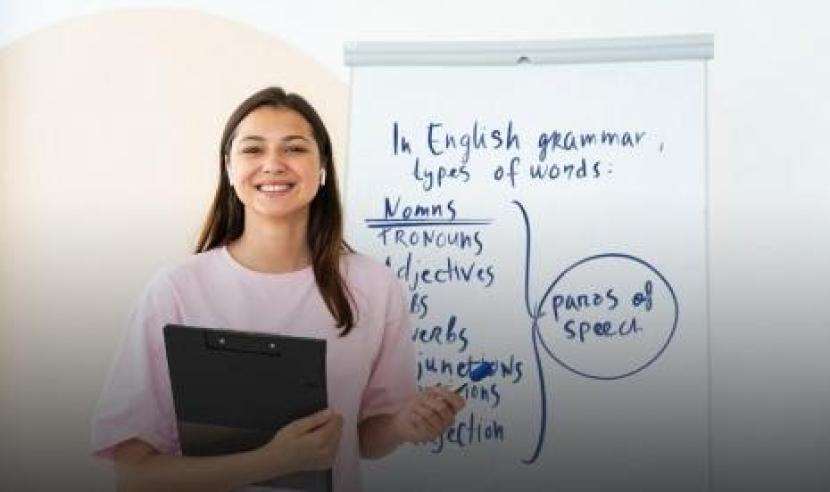 In English grammar,
types of words:
Nomns
PRONOUNS
djectives
bs
verbs
junctions
tions
jection
paros of
speech